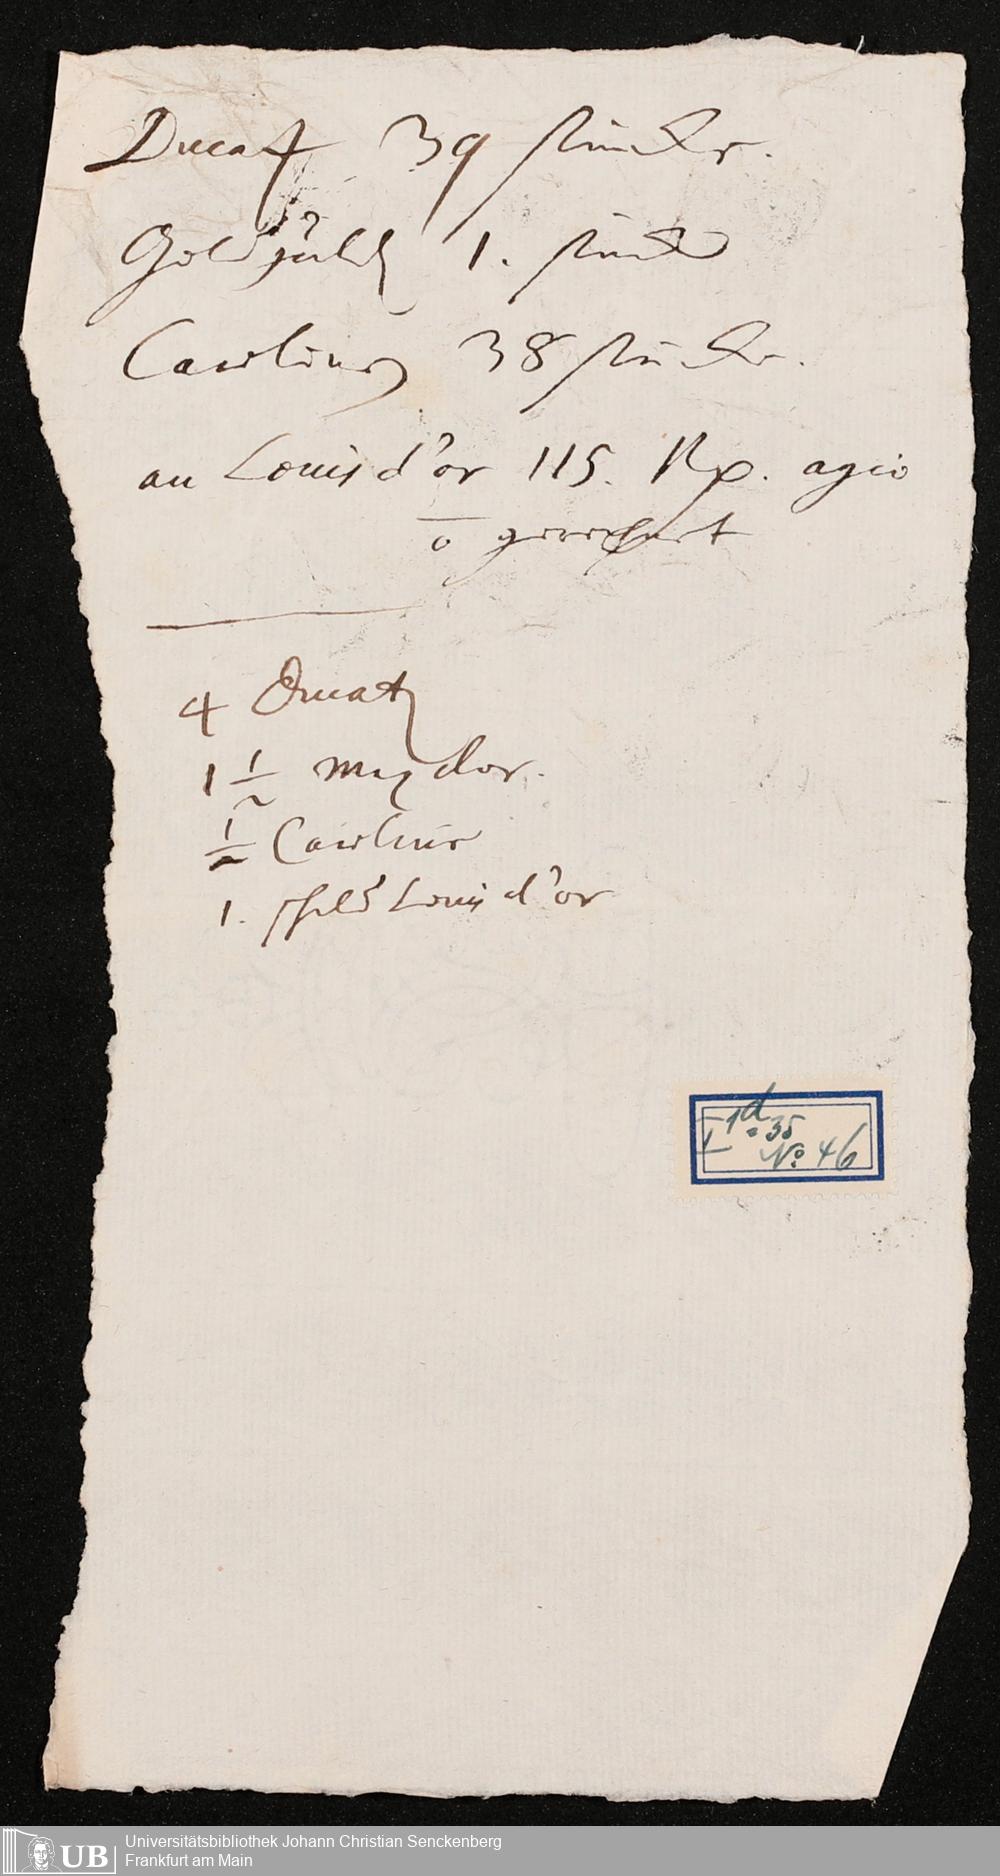 Ducat 39 stücke.
Goldgüld 1. stück
Carolin 38 stücke.
an Louis d'or 115. Rp. agio
o gerechnet
4 Ducat
1 1/2 Maxdor.
1/2 Carolin
1. schild Louis d'or
I 1d 35
No. 46
UB
Universitätsbibliothek Johann Christian Senckenberg
Frankfurt am Main